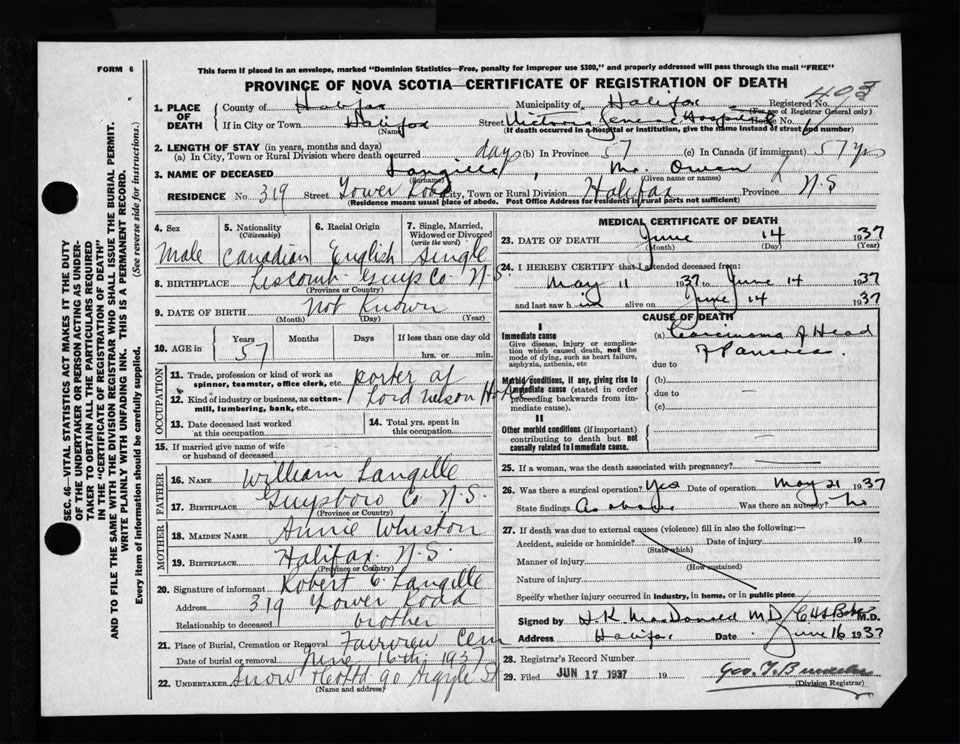 FORM 6
This form if placed in an envelope, marked "Dominion Statistics—Free, penalty for improper use $300," and properly addressed will pass through the mail "FREE"
PROVINCE OF NOVA SCOTIA—CERTIFICATE OF REGISTRATION OF DEATH
SEC. 46—VITAL STATISTICS ACT MAKES IT THE DUTY
OF THE UNDERTAKER OR PERSON ACTING AS UNDER-
TAKER TO OBTAIN ALL THE PARTICULARS REQUIRED
IN THE "CERTIFICATE OF REGISTRATION OF DEATH"
AND TO FILE THE SAME WITH THE DIVISION REGISTRAR WHO SHALL ISSUE THE BURIAL PERMIT.
WRITE PLAINLY WITH UNFADING INK. THIS IS A PERMANENT RECORD.
Every item of information should be carefully supplied. (See reverse side for instructions).
1. PLACE OF DEATH
County of Halifax Municipality of Halifax Registered No.
(For use of Registrar General only)
If in City or Town Halifax Street Victoria General Hospital House No.
(Name) (If death occurred in a hospital or institution, give the name instead of street and number)
2. LENGTH OF STAY (in years, months and days)
(a) In City, Town or Rural Division where death occurred days (b) In Province 57 (c) In Canada (if immigrant) 57 yrs
3. NAME OF DECEASED Langille, Mr. Owen
(Surname) (Given name or names)
RESIDENCE No. 319 Street Tower Road City, Town or Rural Division Halifax Province N.S
(Residence means usual place of abode. Post Office Address for residents in rural parts not sufficient)
4. Sex 5. Nationality (Citizenship) 6. Racial Origin 7. Single, Married, Widowed or Divorced (write the word)
Male Canadian English Single
8. BIRTHPLACE Liscomb Guys Co N.S.
(Province or Country)
9. DATE OF BIRTH Not Known
(Month) (Day) (Year)
10. AGE in Years Months Days If less than one day old
57 hrs. or min.
OCCUPATION
11. Trade, profession or kind of work as spinner, teamster, office clerk, etc. porter at
12. Kind of industry or business, as cotton-mill, lumbering, bank, etc. Lord Nelson Hotel
13. Date deceased last worked at this occupation
14. Total yrs. spent in this occupation
15. If married give name of wife or husband of deceased
FATHER
16. NAME William Langille
17. BIRTHPLACE Guysboro Co N.S.
(Province or Country)
MOTHER
18. MAIDEN NAME Annie Whiston
19. BIRTHPLACE Halifax N.S.
(Province or Country)
20. Signature of informant Robert C. Langille
Address 319 Tower Road
Relationship to deceased brother
21. Place of Burial, Cremation or Removal Fairview Cem
Date of burial or removal June 16th 1937
22. UNDERTAKER Snow & Co Ltd 90 Argyle St
(Name and address)
MEDICAL CERTIFICATE OF DEATH
23. DATE OF DEATH June 14 1937
(Month) (Day) (Year)
24. I HEREBY CERTIFY that I attended deceased from:
May 11 1937 to June 14 1937
and last saw him alive on June 14 1937
CAUSE OF DEATH
I
Immediate cause
Give disease, injury or complication which caused death, not the mode of dying, such as heart failure, asphyxia, asthenia, etc
(a) Carcinoma of Head of Pancreas.
due to
Morbid conditions, if any, giving rise to immediate cause (stated in order proceeding backwards from immediate cause).
(b)
due to
(c)
II
Other morbid conditions (if important) contributing to death but not causally related to immediate cause.
25. If a woman, was the death associated with pregnancy?
26. Was there a surgical operation? Yes Date of operation May 21 1937
State findings As above Was there an autopsy? No
27. If death was due to external causes (violence) fill in also the following:—
Accident, suicide or homicide? Date of injury 19
(State which)
Manner of injury
(How sustained)
Nature of injury
Specify whether injury occurred in industry, in home, or in public place
Signed by H.K. MacDonald M.D. M.D.
Address Halifax Date June 16 1937
28. Registrar's Record Number
29. Filed JUN 17 1937 19
(Division Registrar)